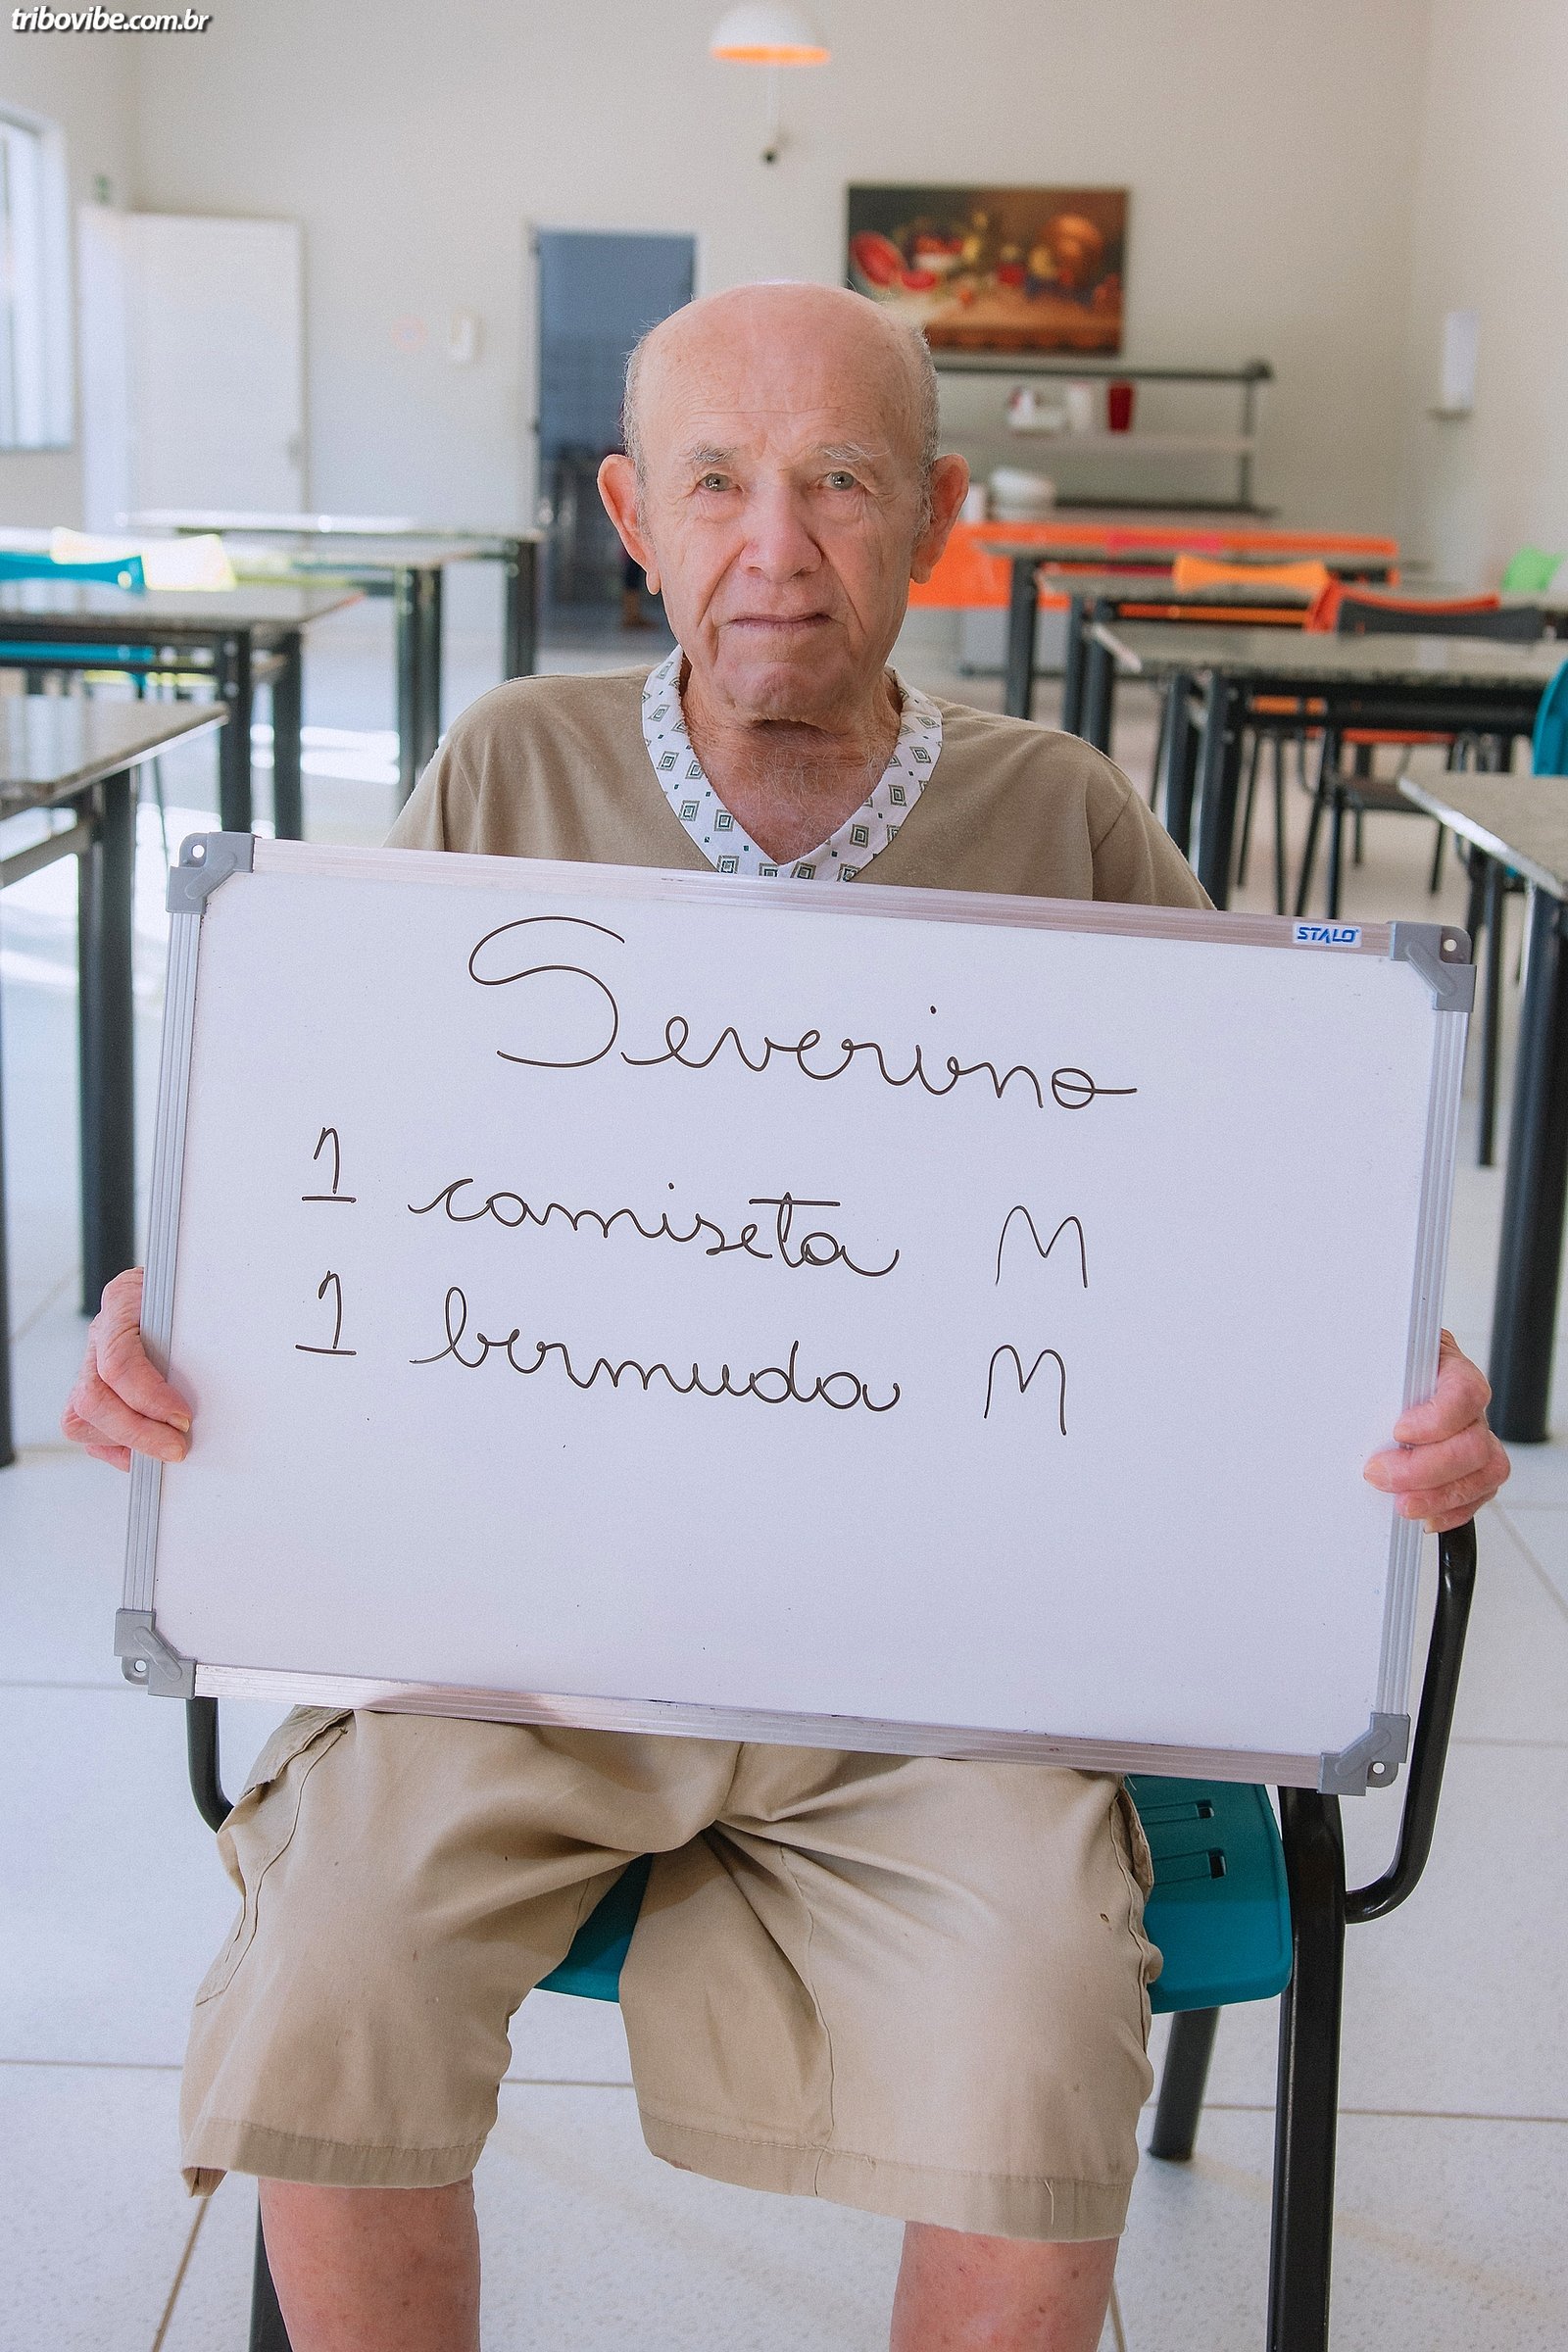 tribovibe.com.br
STALO
Severino
1 camiseta M
1 bermuda M